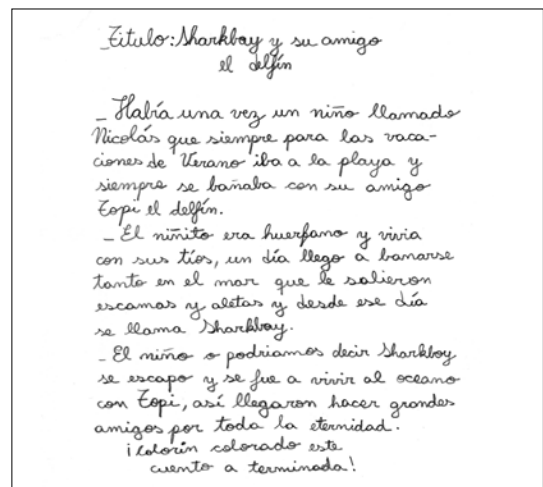 _Título: Sharkbay y su amigo
el delfín
_ Había una vez un niño llamado
Nicolás que siempre para las vaca-
ciones de Verano iba a la playa y
siempre se bañaba con su amigo
Topi el delfín.
_ El niñito era huerfano y vivia
con sus tíos, un día llego a banarse
tanto en el mar que le salieron
escamas y aletas y desde ese día
se llama Sharkbay.
_ El niño o podriamos decir Sharkboy
se escapo y se fue a vivir al oceano
con Topi, así llegaron hacer grandes
amigos por toda la eternidad.
¡Colorín colorado este
cuento a terminada!